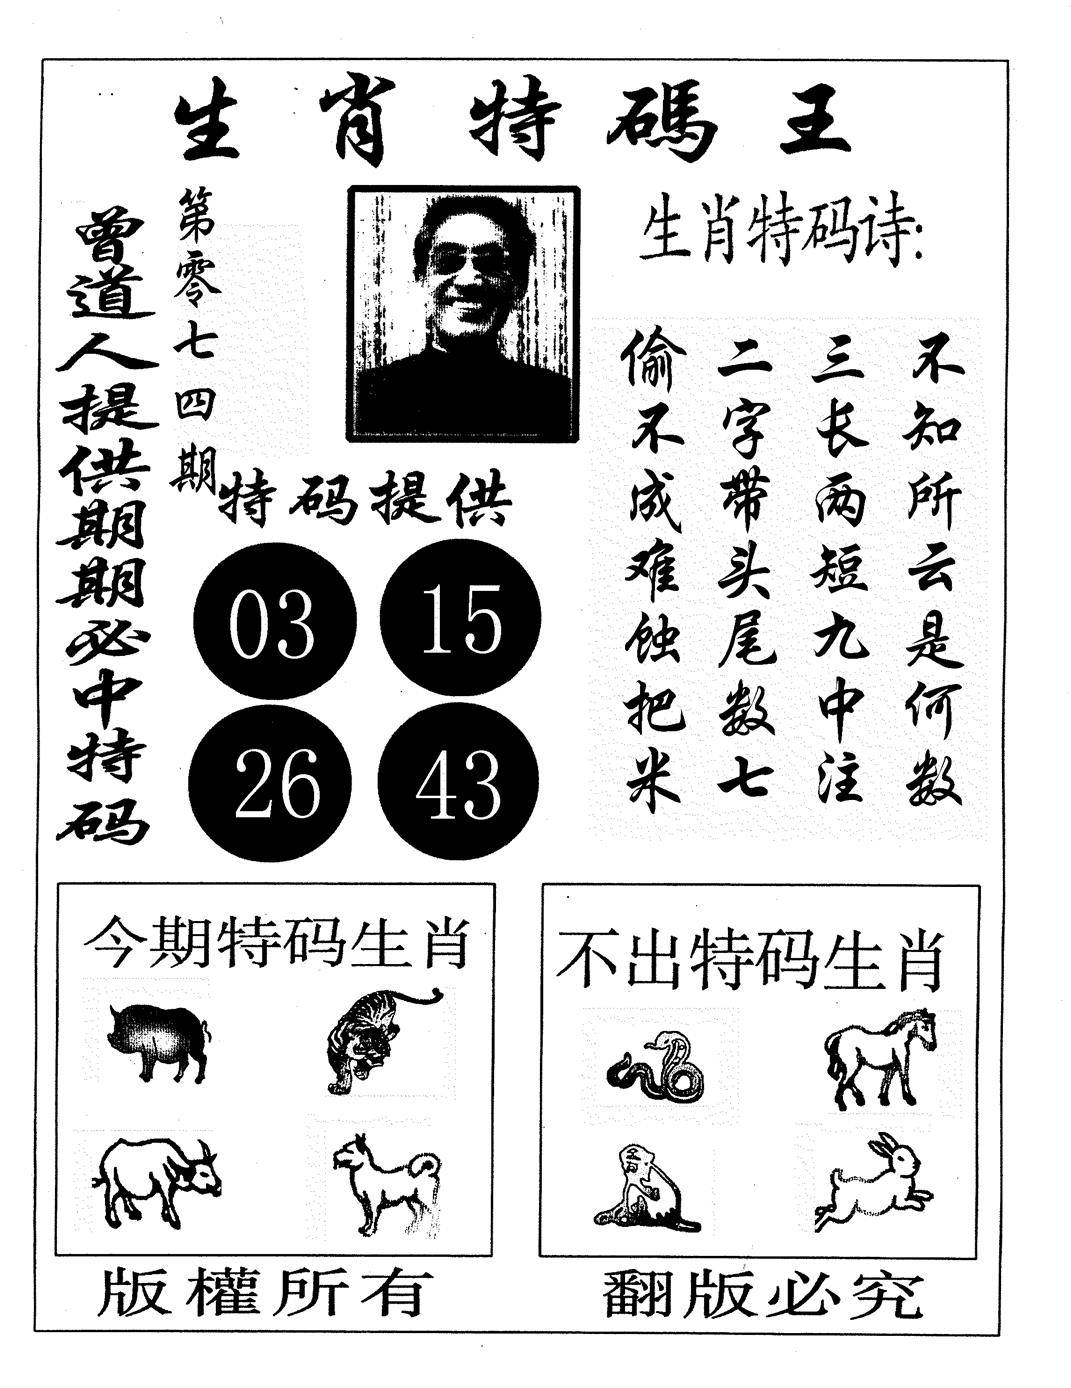 生肖特碼王
曾道人提供期期必中特码
第零七四期
生肖特码诗:
不知所云是何数
三长两短九中注
二字带头尾数七
偷不成难蚀把米
特码提供
03
15
26
43
今期特码生肖
不出特码生肖
版權所有
翻版必究